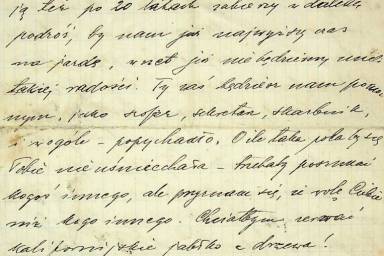 ją też po 20 latach zabierz w daleką
podróż, by nam już najwyższy czas
na jazdę, wnet już nie będziemy mieć
takiej radości. Ty zaś będziesz nam pomoc
nym, jako szofer, sekretarz, skarbnik,
i wogóle – popychadło. O ile taka rola by się
Tobie nie uśmiechała – trzebaby poszukać
kogoś innego, ale przyznam się, że wolę Ciebie
niż kogo innego. Chciałbym zerwać
kalifornijskie jabłko z drzewa!